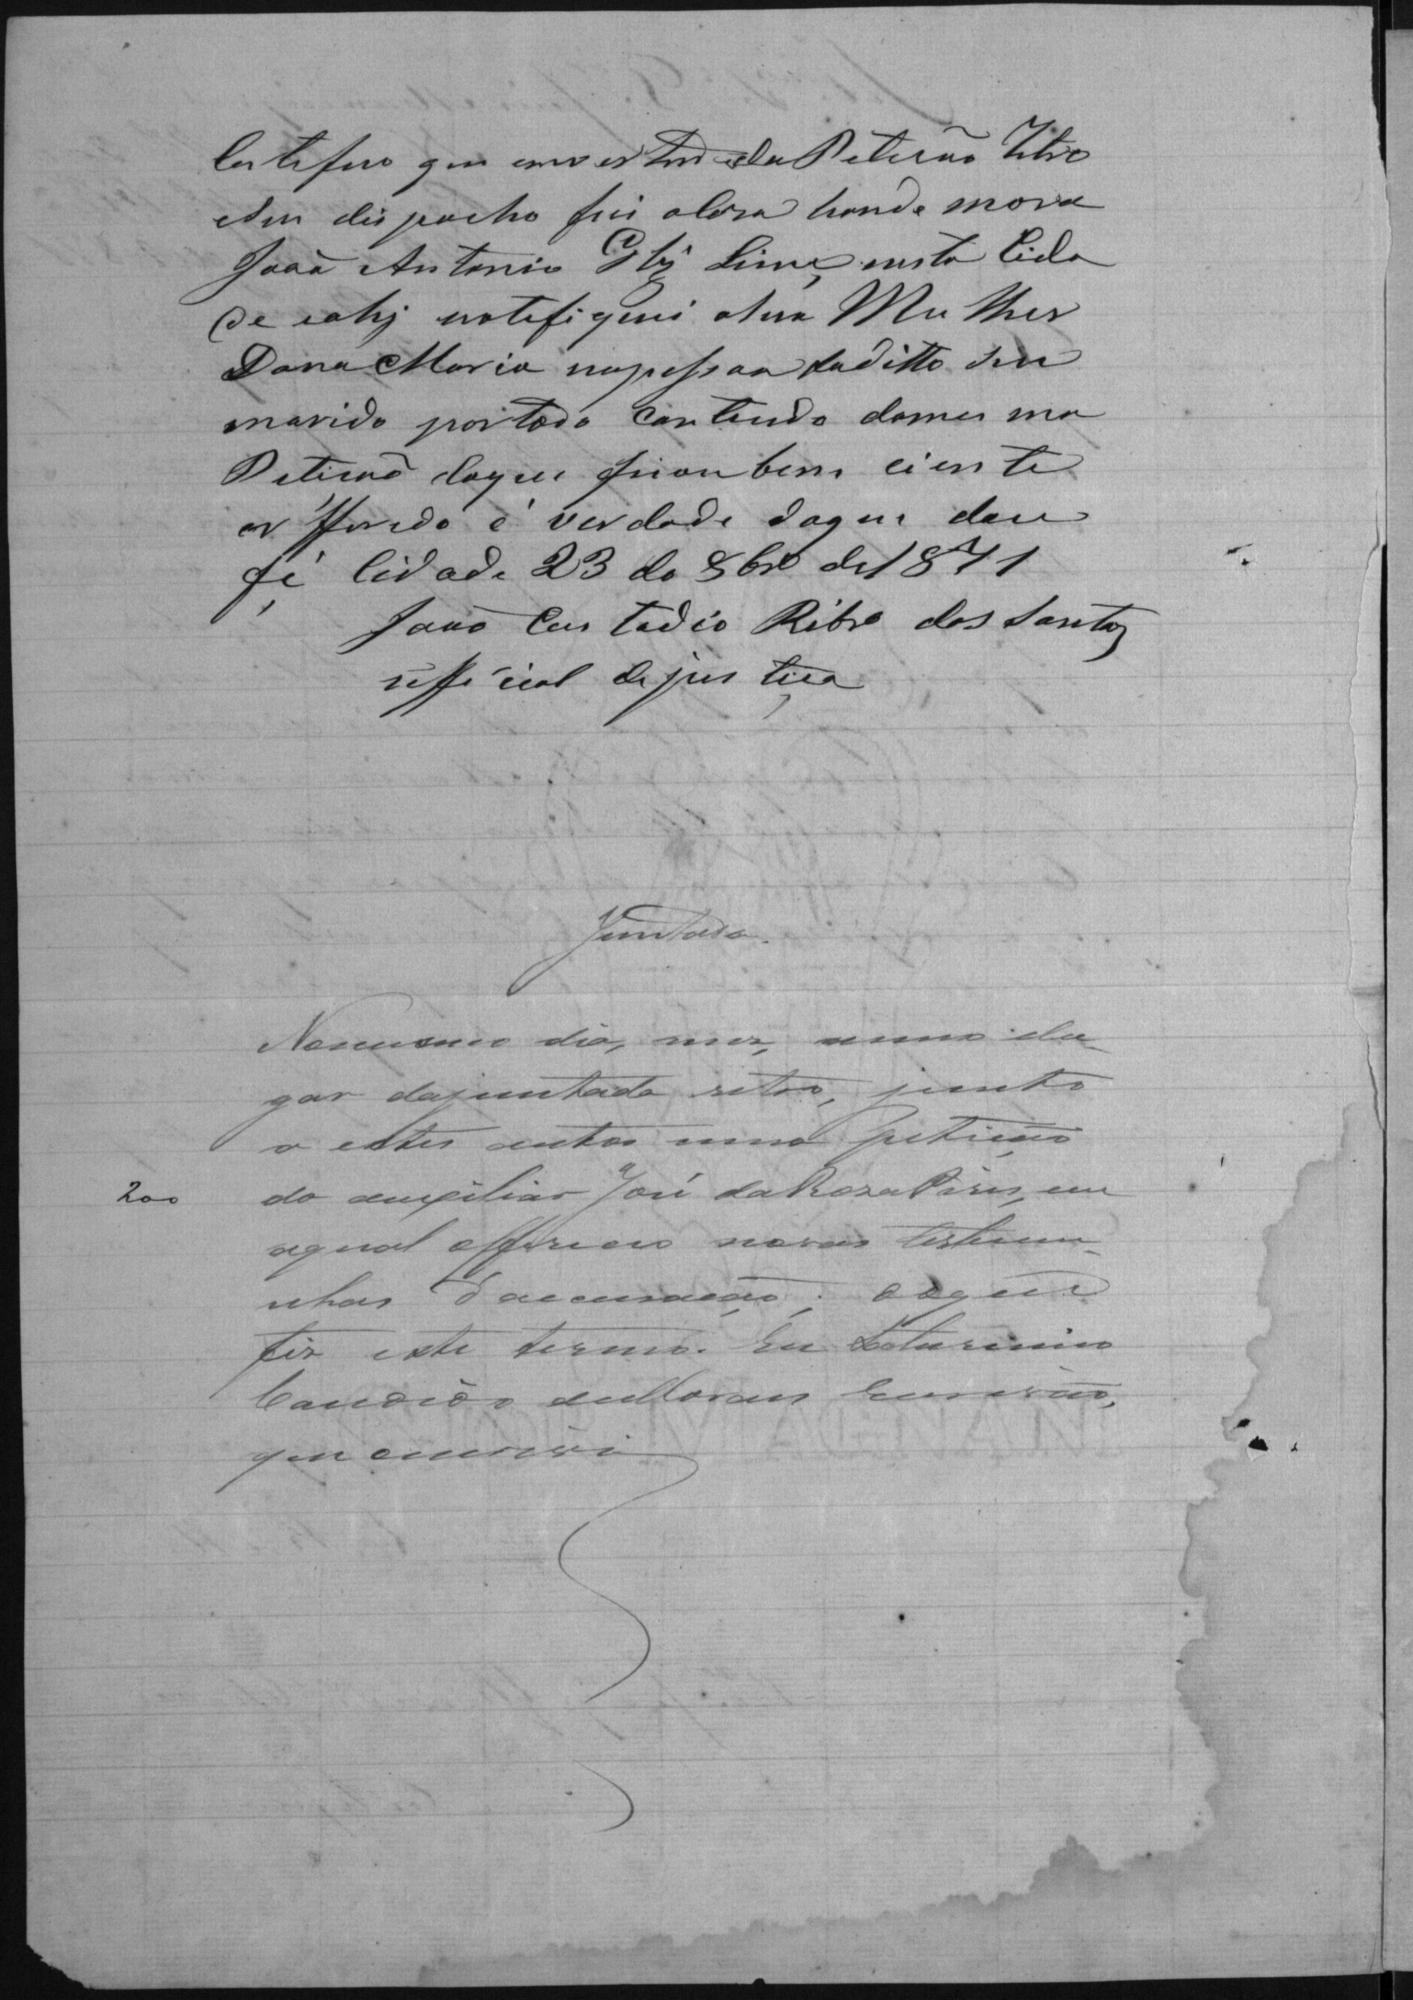 Certefico que em vertude da Peticão Rtro
eseu dispacho fui a Casa honde mora
João Antonio Glz Lima, nesta Cida
de eahj notefiquei asua Mulher
Dona Maria napessoa doditto seu
marido portodo Conteudo domes mo
Peticaõ doque ficou bem ciente
or'fferido é verdade doque dou
fé Cidade 23 do 8bro de 1871
João Custodio Ribro dos Santos
official de justiça
Juntada.
Nomesmo dia, mez, anno elu-
gar dajuntada retro, junto
a estes autos uma petição
200 do auxiliar José da Roza Pires, em
aqual offereceo novas testemu-
nhas d'accusação; doque
fiz este termo. Eu Saturnino
Candido de Moraes Escrivão,
que escrevi